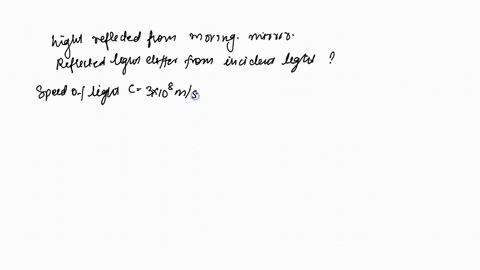 Light reflected from moving. mirror.
Reflected light differ from incident light ?
Speed of light C = 3×10⁸ m/s